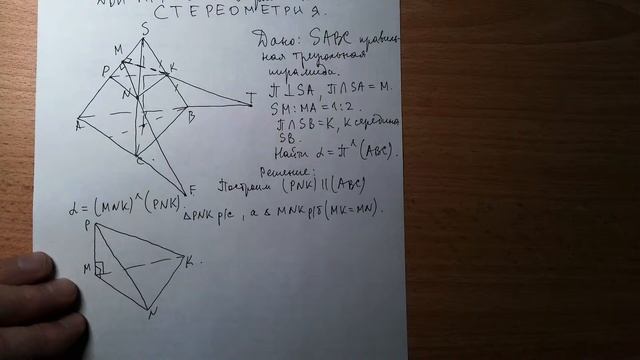 СТЕРЕОМЕТРИЯ.
S
M
P
K
N
A
B
T
C
F
Дано: SABC правиль-
ная треугольная
пирамида.
П ⊥ SA, П ∩ SA = M.
SM : MA = 1 : 2.
П ∩ SB = K, K середина
SB.
Найти α = П ^ (ABC).
Решение:
Построим (PNK) || (ABC)
α = (MNK) ^ (PNK).
ΔPNK р/с, а Δ MNK р/б (MK = MN).
P
M
K.
N